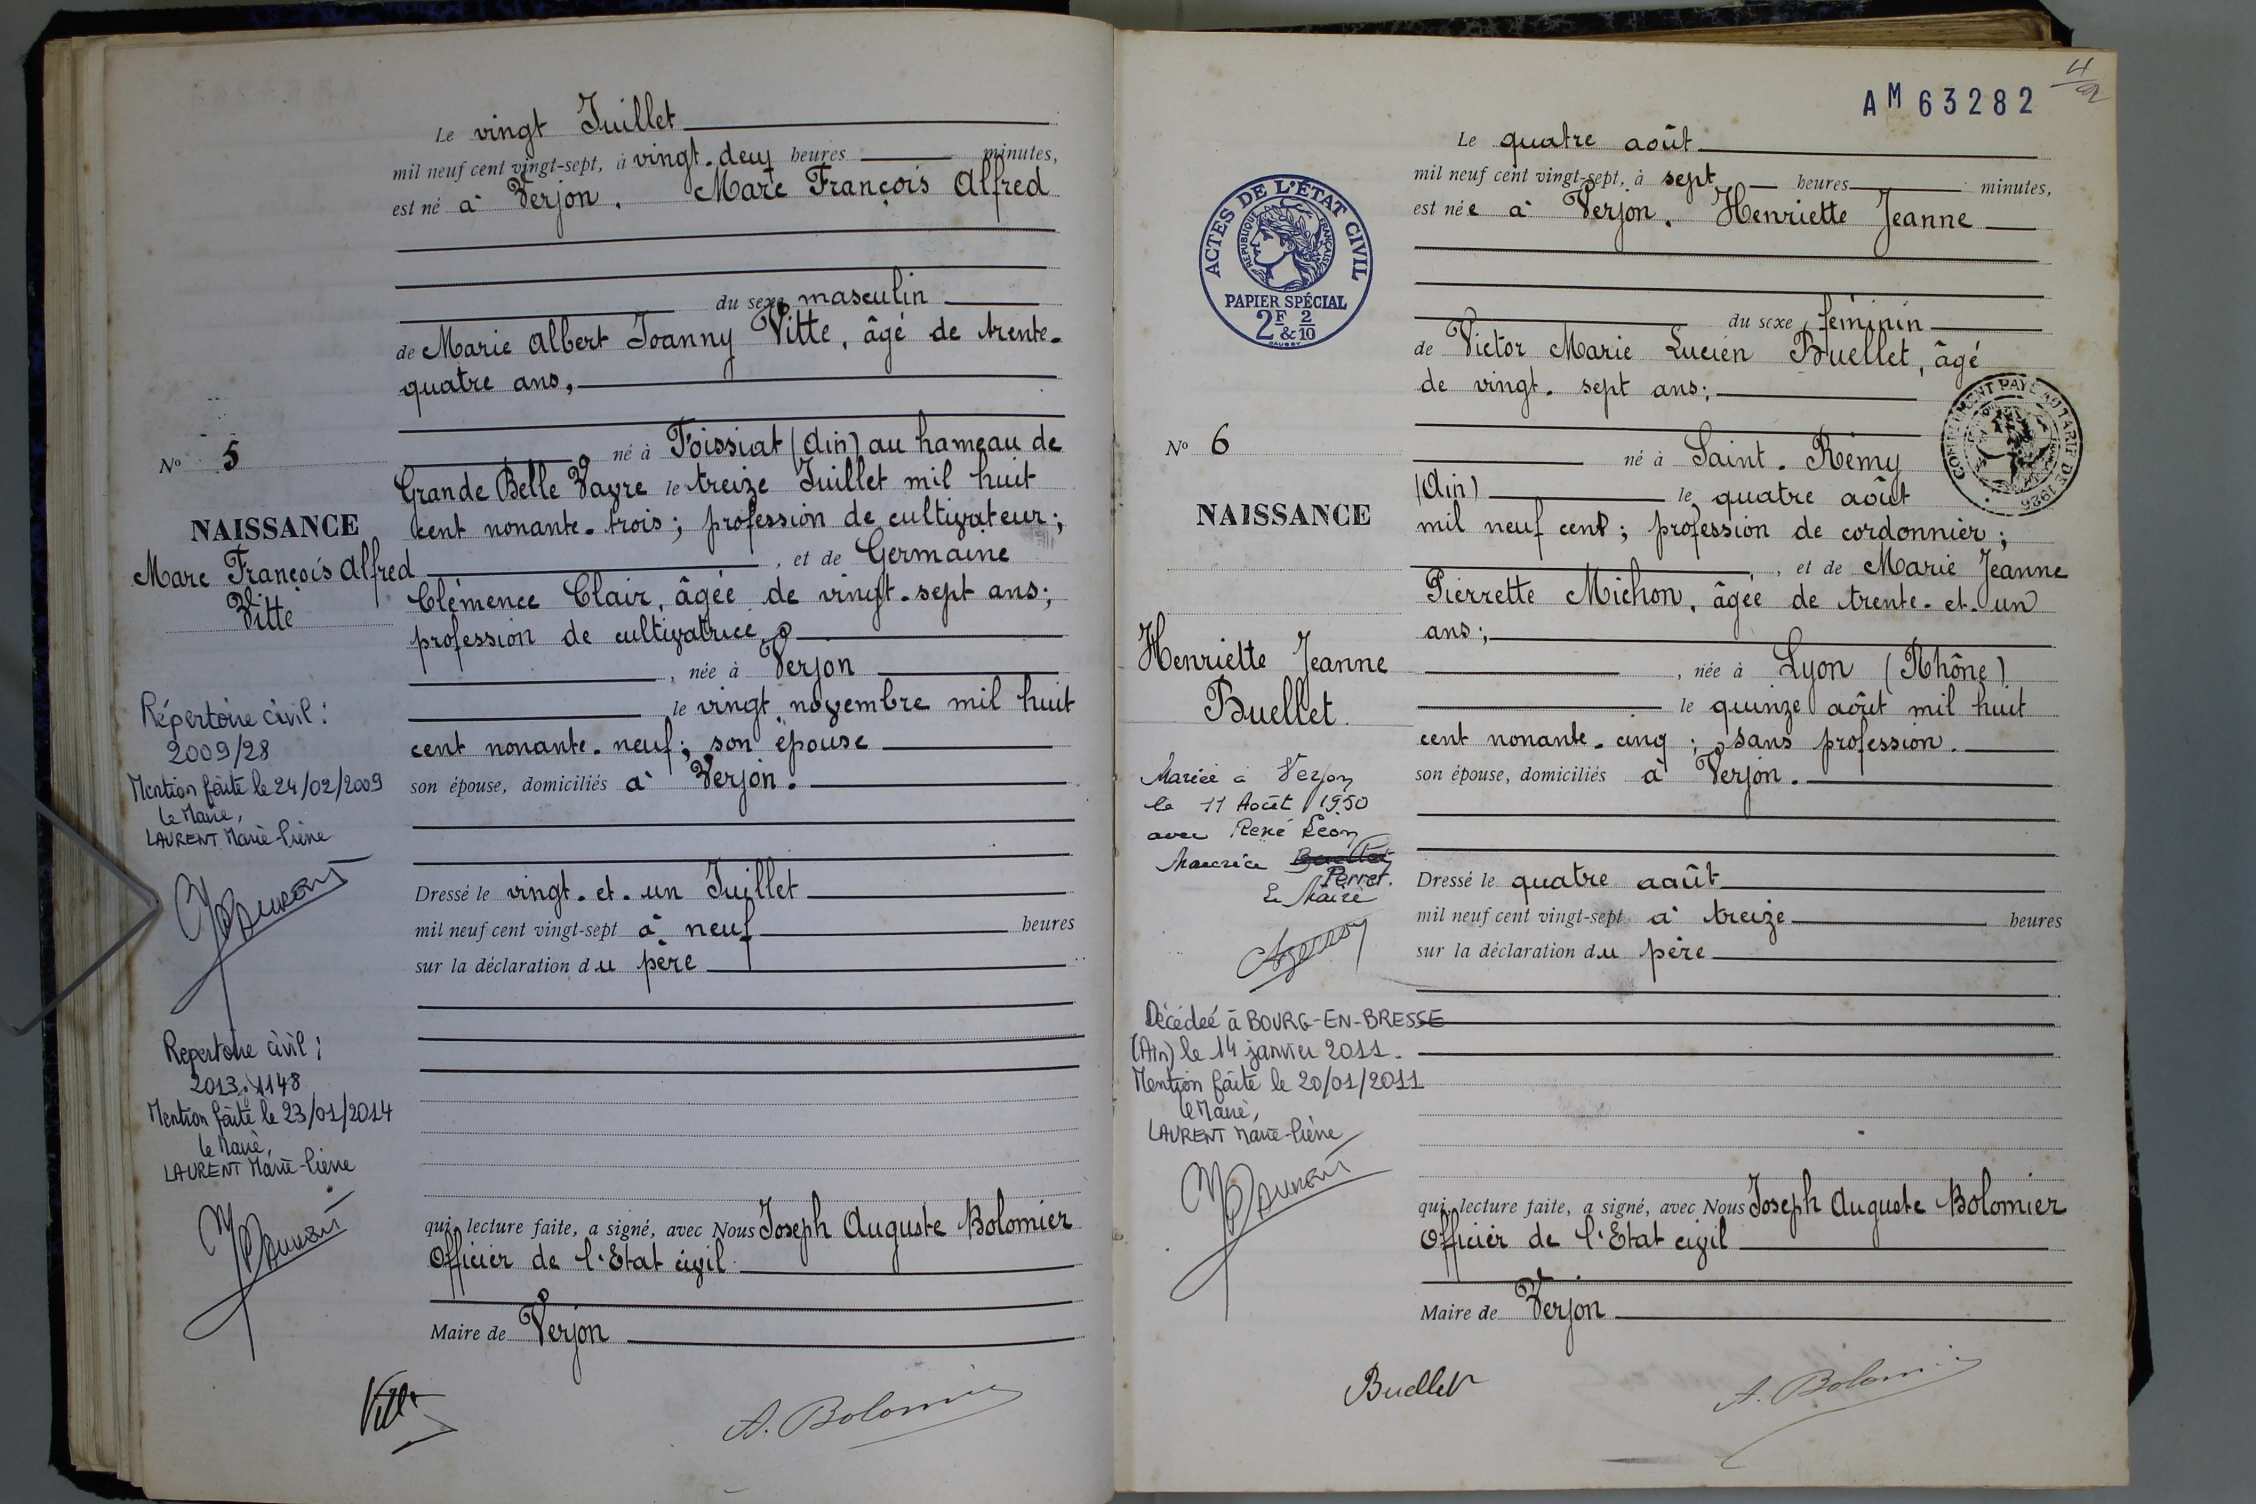 Le vingt Juillet
mil neuf cent vingt-sept, à vingt-deux heures minutes,
est né à Verjon. Marc François Alfred
du sexe masculin
de Marie Albert Joanny Vitte, âgé de trente-
quatre ans,
né à Foissiat (Ain) au hameau de
Grande Belle Vavre le treize Juillet mil huit
cent nonante-trois; profession de cultivateur;
, et de Germaine
Clémence Clair, âgée de vingt-sept ans;
profession de cultivatrice,
, née à Verjon
le vingt novembre mil huit
cent nonante-neuf; son épouse
son épouse, domiciliés à Verjon.
Dressé le vingt-et-un Juillet
mil neuf cent vingt-sept à neuf heures
sur la déclaration du père
qui, lecture faite, a signé, avec Nous Joseph Auguste Bolomier
Officier de l'Etat civil
Maire de Verjon
Vitte
A. Bolomier
No 5
NAISSANCE
Marc François Alfred
Vitte
Répertoire civil :
2009/28
Mention faite le 24/02/2009
le Maire,
LAURENT Marie-Pierre
Repertoire civil :
Mention faite le 23/01/2014
le Maire,
LAURENT Marie-Pierre
AM 63282
Le quatre août
mil neuf cent vingt-sept, à sept heures minutes,
est née à Verjon. Henriette Jeanne
du sexe féminin
de Victor Marie Lucien Buellet, âgé
de vingt-sept ans;
né à Saint-Rémy
(Ain) le quatre août
mil neuf cent; profession de cordonnier;
, et de Marie Jeanne
Pierrette Michon, âgée de trente-et-un
ans;
, née à Lyon (Rhône)
le quinze août mil huit
cent nonante-cinq; sans profession.
son épouse, domiciliés à Verjon.
Dressé le quatre août
mil neuf cent vingt-sept à treize heures
sur la déclaration du père
qui, lecture faite, a signé, avec Nous Joseph Auguste Bolomier
Officier de l'Etat civil
Maire de Verjon
Buellet
A. Bolomier
ACTES DE L'ÉTAT CIVIL
RÉPUBLIQUE FRANÇAISE
PAPIER SPÉCIAL
2F & 2/10
COMPLEMENT PAYÉ AU TARIF DE 1926
No 6
NAISSANCE
Henriette Jeanne
Buellet
Mariée à Verjon
le 11 Août 1950
avec René Léon
Maurice
Perret.
Le Maire
Décédée à BOURG-EN-BRESSE
(Ain) le 14 janvier 2011.
Mention faite le 20/01/2011
le Maire,
LAURENT Marie-Pierre